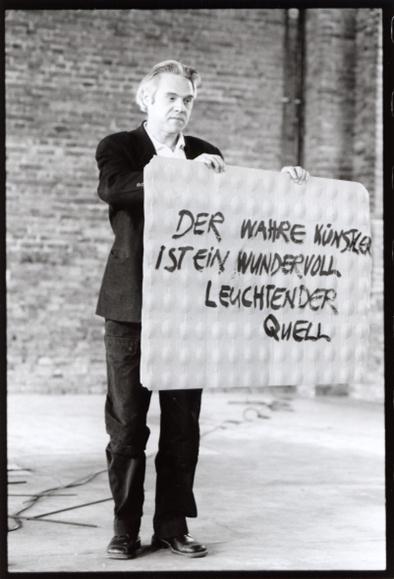 DER WAHRE KÜNSTLER
IST EIN WUNDERVOLL
LEUCHTENDER
QUELL